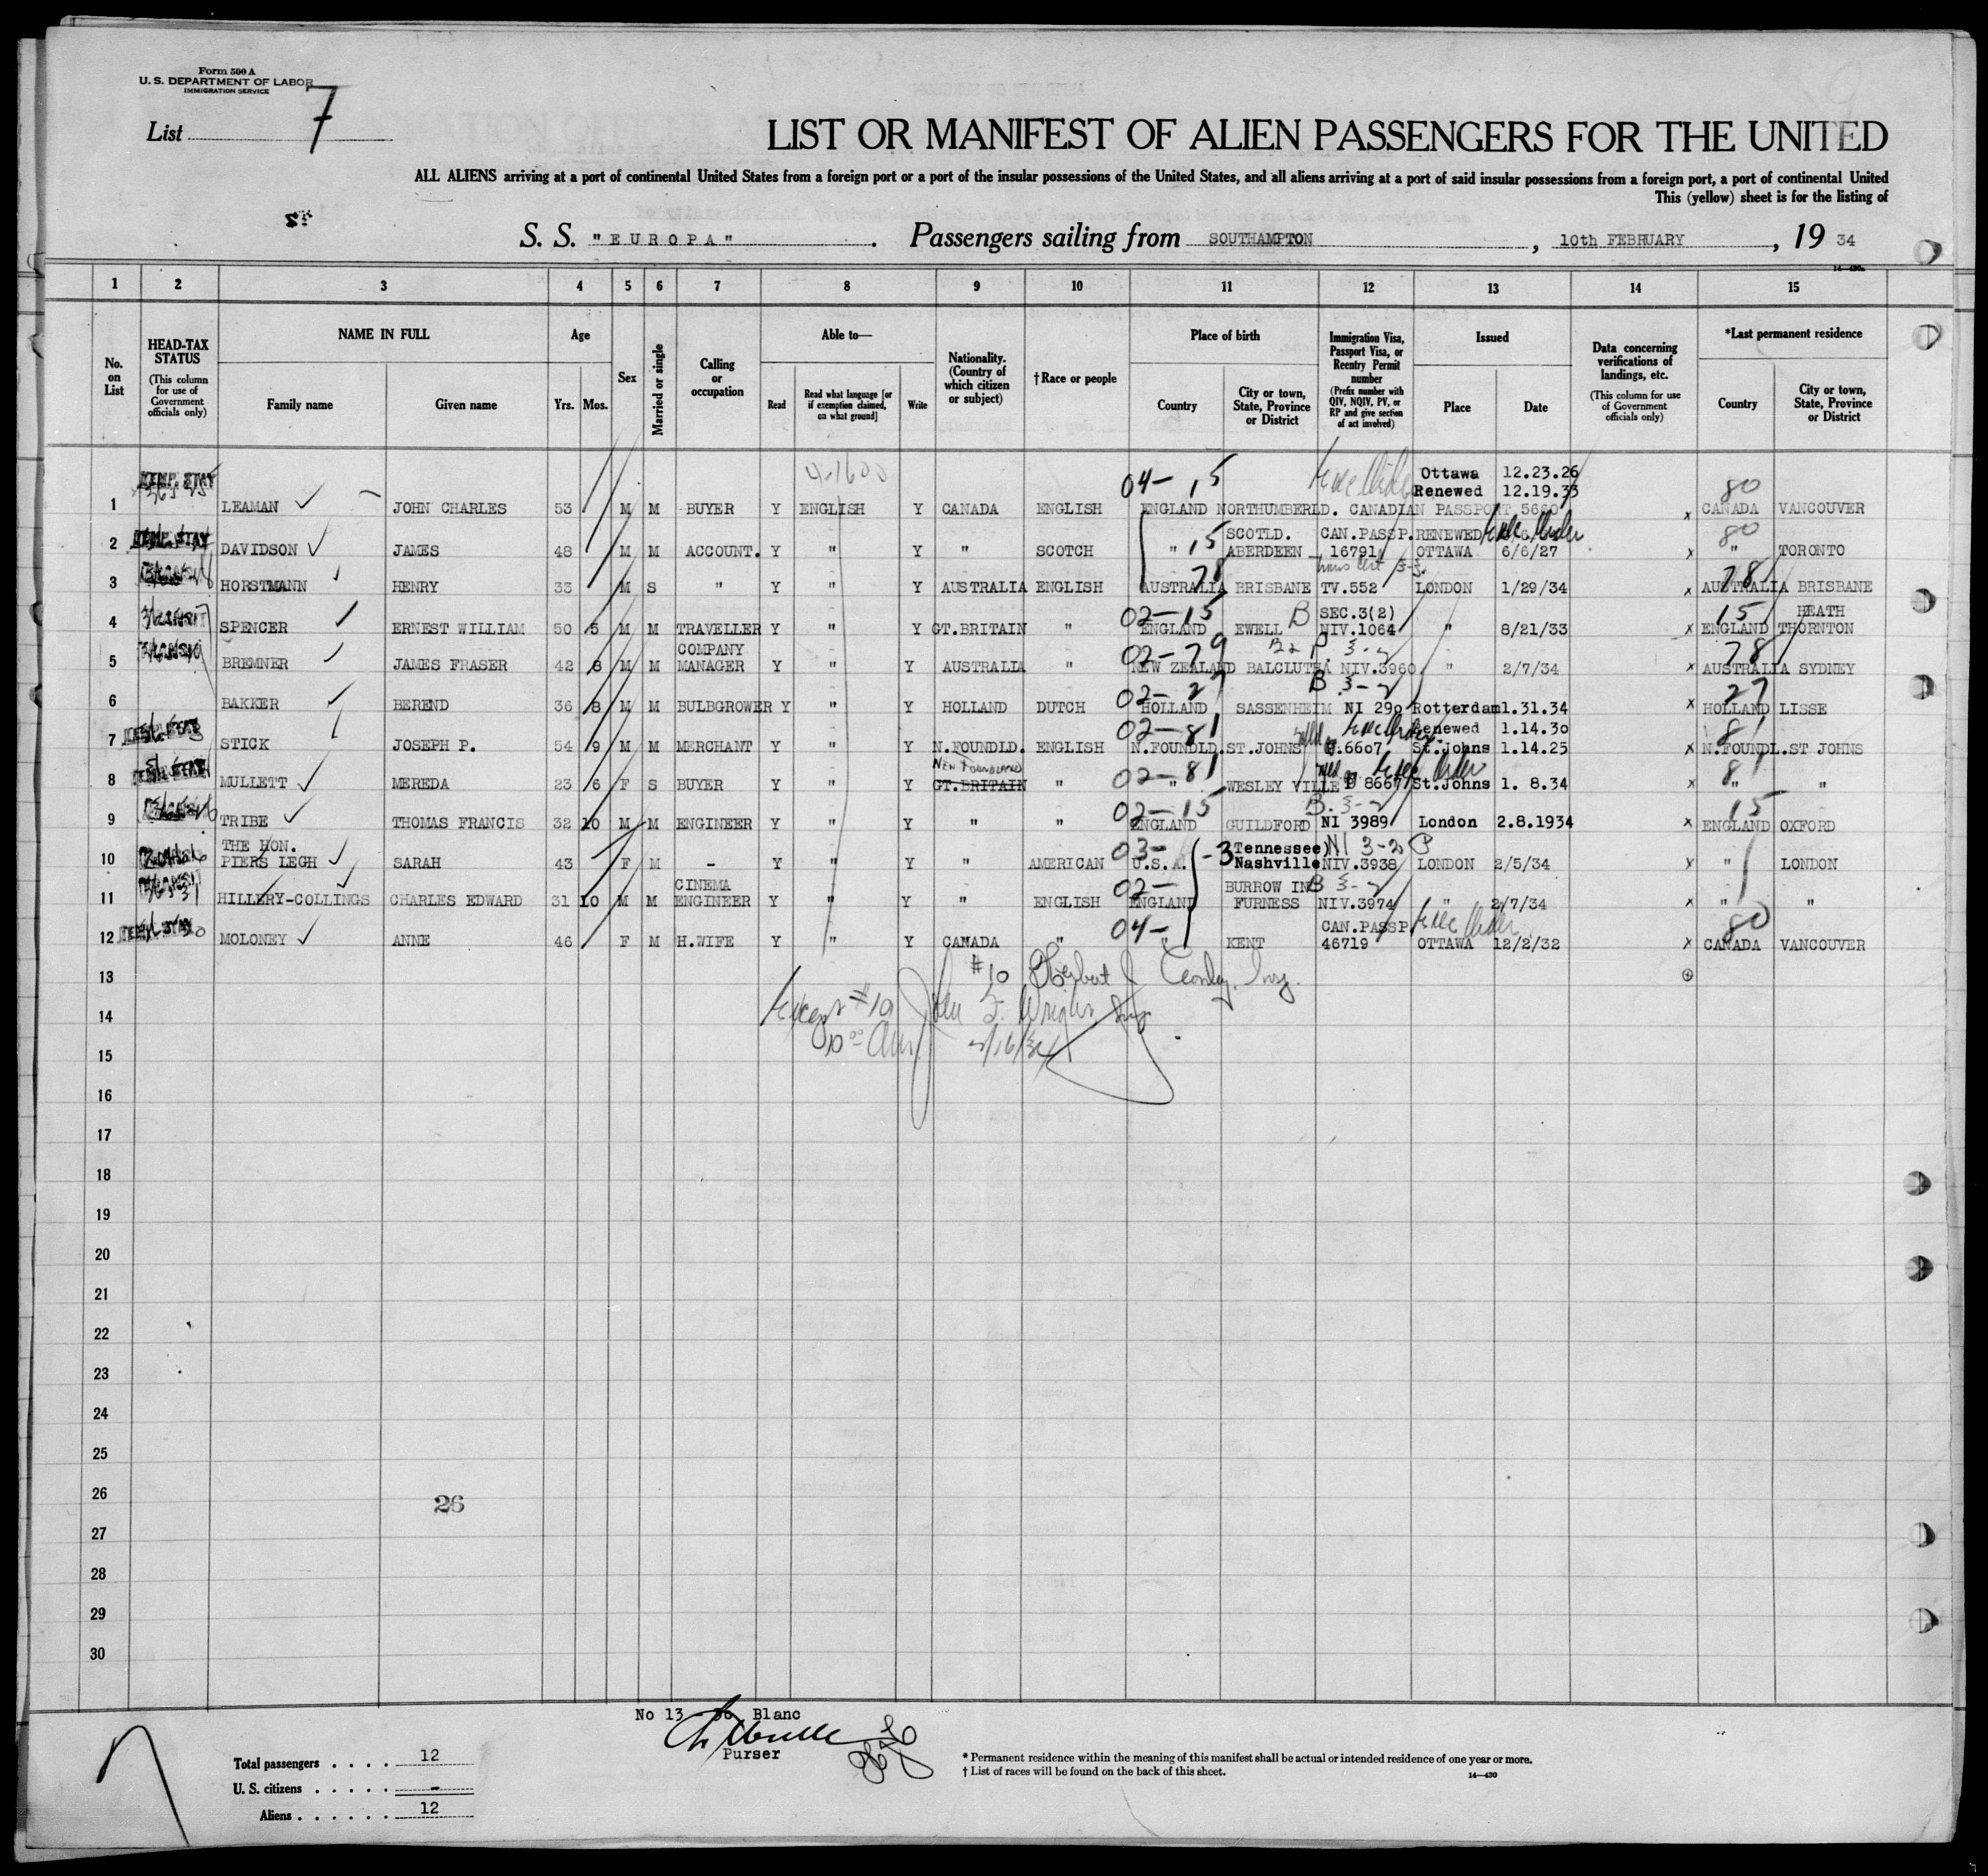 Form 500 A
U. S. DEPARTMENT OF LABOR
IMMIGRATION SERVICE
List 7
LIST OR MANIFEST OF ALIEN PASSENGERS FOR THE UNITED
ALL ALIENS arriving at a port of continental United States from a foreign port or a port of the insular possessions of the United States, and all aliens arriving at a port of said insular possessions from a foreign port, a port of continental United
This (yellow) sheet is for the listing of
S. S. "EUROPA" . Passengers sailing from SOUTHAMPTON , 10th FEBRUARY , 19 34
14—430a
1 2 3 4 5 6 7 8 9 10 11 12 13 14 15
No. on List
HEAD-TAX STATUS (This column for use of Government officials only)
NAME IN FULL Family name Given name
Age Yrs. Mos.
Sex
Married or single
Calling or occupation
Able to— Read Read what language [or if exemption claimed, on what ground] Write
Nationality. (Country of which citizen or subject)
†Race or people
Place of birth Country City or town, State, Province or District
Immigration Visa, Passport Visa, or Reentry Permit number (Prefix number with QIV, NQIV, PV, or RP and give section of act involved)
Issued Place Date
Data concerning verifications of landings, etc. (This column for use of Government officials only)
*Last permanent residence Country City or town, State, Province or District
04- 15 Ottawa 12.23.26 80
Renewed 12.19.33
1 LEAMAN JOHN CHARLES 53 M M BUYER Y ENGLISH Y CANADA ENGLISH ENGLAND NORTHUMBERLD. CANADIAN PASSPORT 5660 x CANADA VANCOUVER
15 SCOTLD. CAN.PASSP. RENEWED 80
2 DAVIDSON JAMES 48 M M ACCOUNT. Y " Y " SCOTCH " ABERDEEN 16791 OTTAWA 6/6/27 x " TORONTO
78 78
3 HORSTMANN HENRY 33 M S " Y " Y AUSTRALIA ENGLISH AUSTRALIA BRISBANE TV.552 LONDON 1/29/34 x AUSTRALIA BRISBANE
02-15 B SEC.3(2) 15 HEATH
4 SPENCER ERNEST WILLIAM 50 5 M M TRAVELLER Y " Y GT.BRITAIN " ENGLAND EWELL NIV.1064 " 8/21/33 x ENGLAND THORNTON
COMPANY 02-79 3-2 78
5 BREMNER JAMES FRASER 42 8 M M MANAGER Y " Y AUSTRALIA " NEW ZEALAND BALCLUTHA NIV.3960 " 2/7/34 x AUSTRALIA SYDNEY
02-27 B 3-2 27
6 BAKKER BEREND 36 8 M M BULBGROWER Y " Y HOLLAND DUTCH HOLLAND SASSENHEIM NI 290 Rotterdam 1.31.34 x HOLLAND LISSE
02-81 Renewed 1.14.30 81
7 STICK JOSEPH P. 54 9 M M MERCHANT Y " Y N.FOUNDLD. ENGLISH N.FOUNDLD. ST.JOHNS 6607 St.Johns 1.14.25 x N.FOUNDL. ST JOHNS
NEW FOUNDLAND 02-81 81
8 MULLETT MEREDA 23 6 F S BUYER Y " Y GT.BRITAIN " " WESLEY VILLE 8667 St.Johns 1. 8.34 x " "
02-15 B. 3-2 15
9 TRIBE THOMAS FRANCIS 32 10 M M ENGINEER Y " Y " " ENGLAND GUILDFORD NI 3989 London 2.8.1934 x ENGLAND OXFORD
THE HON. 03- -3 Tennessee NI 3-2 P
10 PIERS LEGH SARAH 43 F M - Y " Y " AMERICAN U.S.A. Nashville NIV.3938 LONDON 2/5/34 x " LONDON
CINEMA 02- BURROW IN B 3-2
11 HILLERY-COLLINGS CHARLES EDWARD 31 10 M M ENGINEER Y " Y " ENGLISH ENGLAND FURNESS NIV.3974 " 2/7/34 x " "
04- CAN.PASSP. 80
12 MOLONEY ANNE 46 F M H.WIFE Y " Y CANADA " " KENT 46719 OTTAWA 12/2/32 x CANADA VANCOUVER
13 #10
14 Except #10
15 2/16/34
16
17
18
19
20
21
22
23
24
25
26 26
27
28
29
30
No 13 - 30 Blanc
Purser
Total passengers . . . . 12
U. S. citizens . . . . . -
Aliens . . . . . . 12
* Permanent residence within the meaning of this manifest shall be actual or intended residence of one year or more.
† List of races will be found on the back of this sheet.
14—430